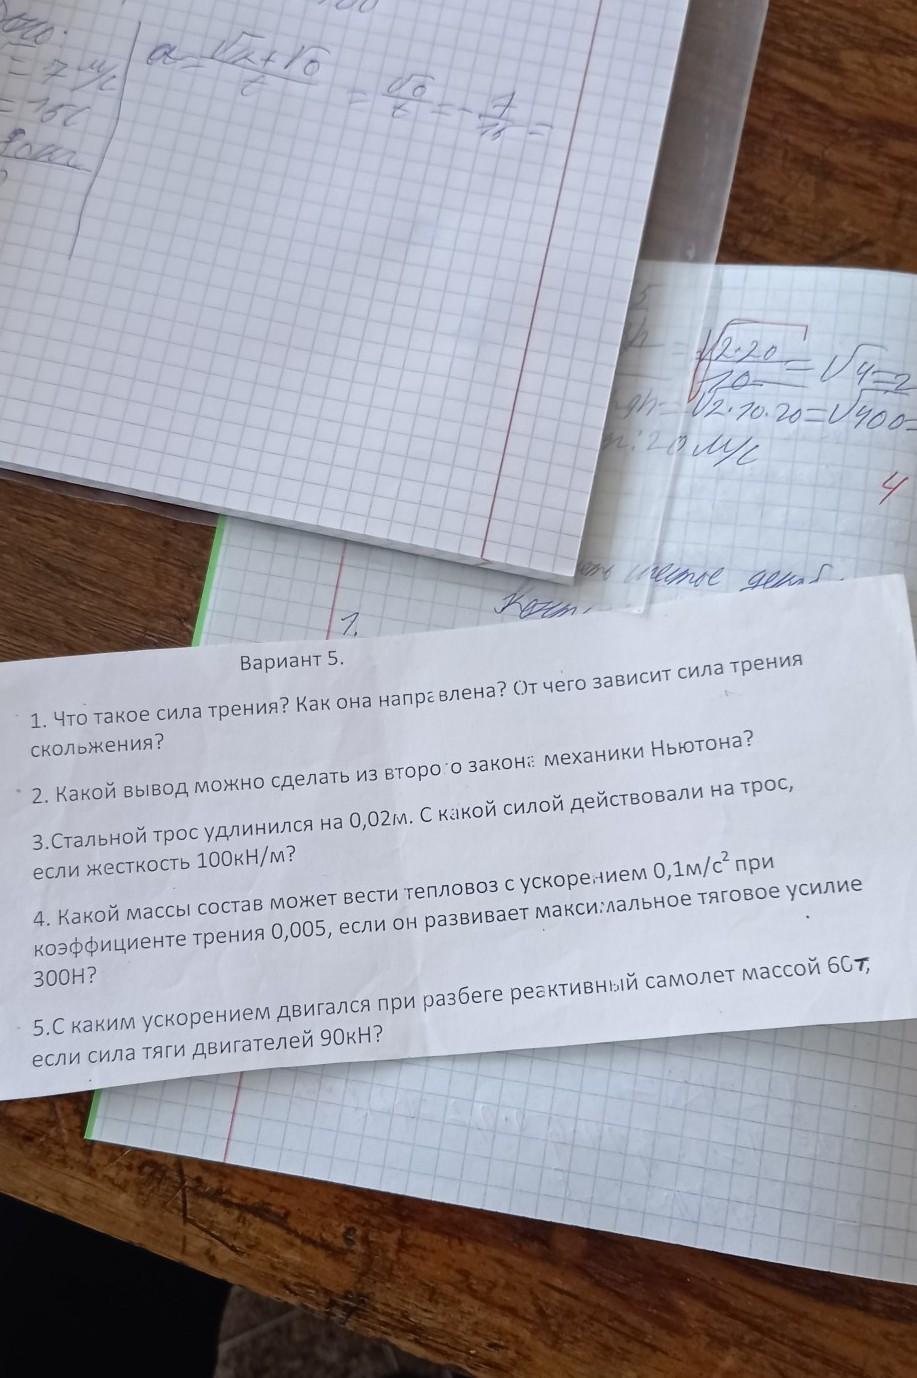 = 7 м/с
a =
=
= - 7
=
2·20
=
√4=2
10
=√2·10·20=√400=
20 м/с
4
1.
Вариант 5.
1. Что такое сила трения? Как она направлена? От чего зависит сила трения
скольжения?
2. Какой вывод можно сделать из второго закона механики Ньютона?
3.Стальной трос удлинился на 0,02м. С какой силой действовали на трос,
если жесткость 100кН/м?
4. Какой массы состав может вести тепловоз с ускорением 0,1м/с² при
коэффициенте трения 0,005, если он развивает максимальное тяговое усилие
300Н?
5.С каким ускорением двигался при разбеге реактивный самолет массой 60т,
если сила тяги двигателей 90кН?